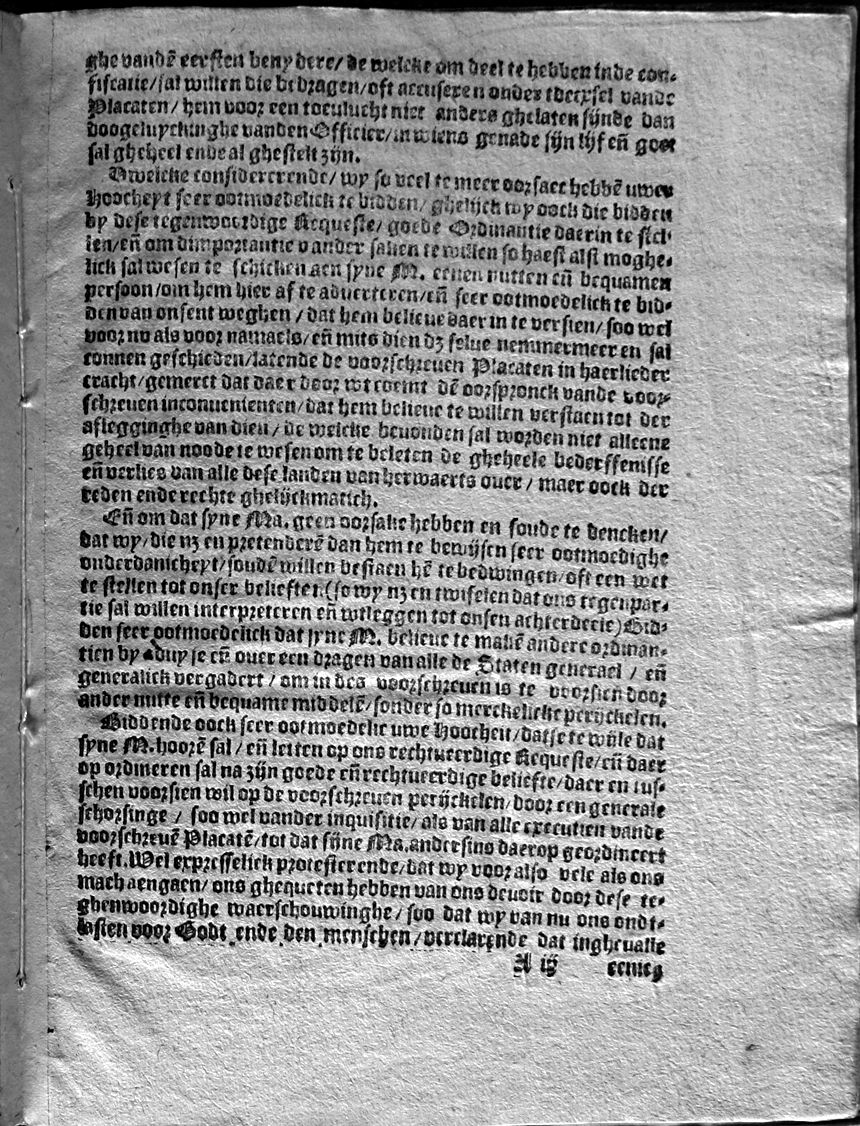 ghe vandē eersten benydere/ de welcke om deel te hebben inde con-
fiscatie/sal willen die bedragen/oft accuseren onder tdecxsel vande
Placaten/ hem voor een toevlucht niet anders ghelaten sijnde dan
doogeluyckinghe vanden Officier/in wiens genade sijn lijf eñ goet
sal gheheel ende al ghestelt zijn.
Twelcke considererende/ wy so veel te meer oorsaec hebbē uwen
Hoocheyt seer ootmoedelick te bidden/ ghelijck wy oock die bidden
by dese tegenwoordige Requeste/ goede Ordinantie daerin te stel-
len/eñ om dimportantie vander saken te willen so haest alst moghe-
lick sal wesen te schicken aen syne M. eenen nutten eñ bequamen
persoon/om hem hier af te adverteren/eñ seer ootmoedelick te bid-
den van onsent weghen / dat hem believe daer in te versien/ soo wel
voor nu als voor namaels/ eñ mits dien dz selve nemmermeer en sal
connen geschieden/latende de voorschreven Placaten in haerlieder
cracht/gemerct dat daer door wt coemt dē oorspronck vande voor-
schreven inconvenienten/ dat hem believe te willen verstaen tot der
aflegginghe van dien / de welcke bevonden sal worden niet alleene
geheel van noode te wesen om te beleten de gheheele bederffenisse
eñ verlies van alle dese landen van herwaerts over / maer oock der
reden ende rechte ghelijckmatich.
Eñ om dat syne Ma. geen oorsake hebben en soude te dencken/
dat wy/ die nz en pretenderē dan hem te bewijsen seer ootmoedighe
onderdanicheyt/ soudē willen bestaen hē te bedwingen/ oft een wet
te stellen tot onser beliefte:(so wy nz en twifelen dat ons tegenpar-
tie sal willen interpreteren eñ wtleggen tot onsen achterdeele) Bid-
den seer ootmoedelick dat syne M. believe te makē andere ordinan-
tien by aduyse eñ over een dragen van alle de Staten generael / eñ
generalick vergadert / om in des voorschreven is te voorsien door
ander nutte eñ bequame middelē/ sonder so merckelicke perijckelen.
Biddende oock seer ootmoedelic uwe Hoocheit/ datse te wijle dat
syne M. hoorē sal / eñ letten op ons rechtveerdige Requeste/ eñ daer
op ordineren sal na zijn goede eñ rechtveerdige beliefte/ daer en tus-
schen voorsien wil op de voorschreven perijckelen/ door een generale
schorsinge / soo wel vander inquisitie/ als van alle executien vande
voorschrevē Placatē/ tot dat sijne Ma. andersins daerop geordineert
heeft. Wel expresselick protesterende/ dat wy voor also vele als ons
mach aengaen/ ons ghequeten hebben van ons devoir door dese te-
ghenwoordighe waerschouwinghe / soo dat wy van nu ons ondt-
lasten voor Godt ende den menschen/ verclarende dat inghevalle
A iij eenich